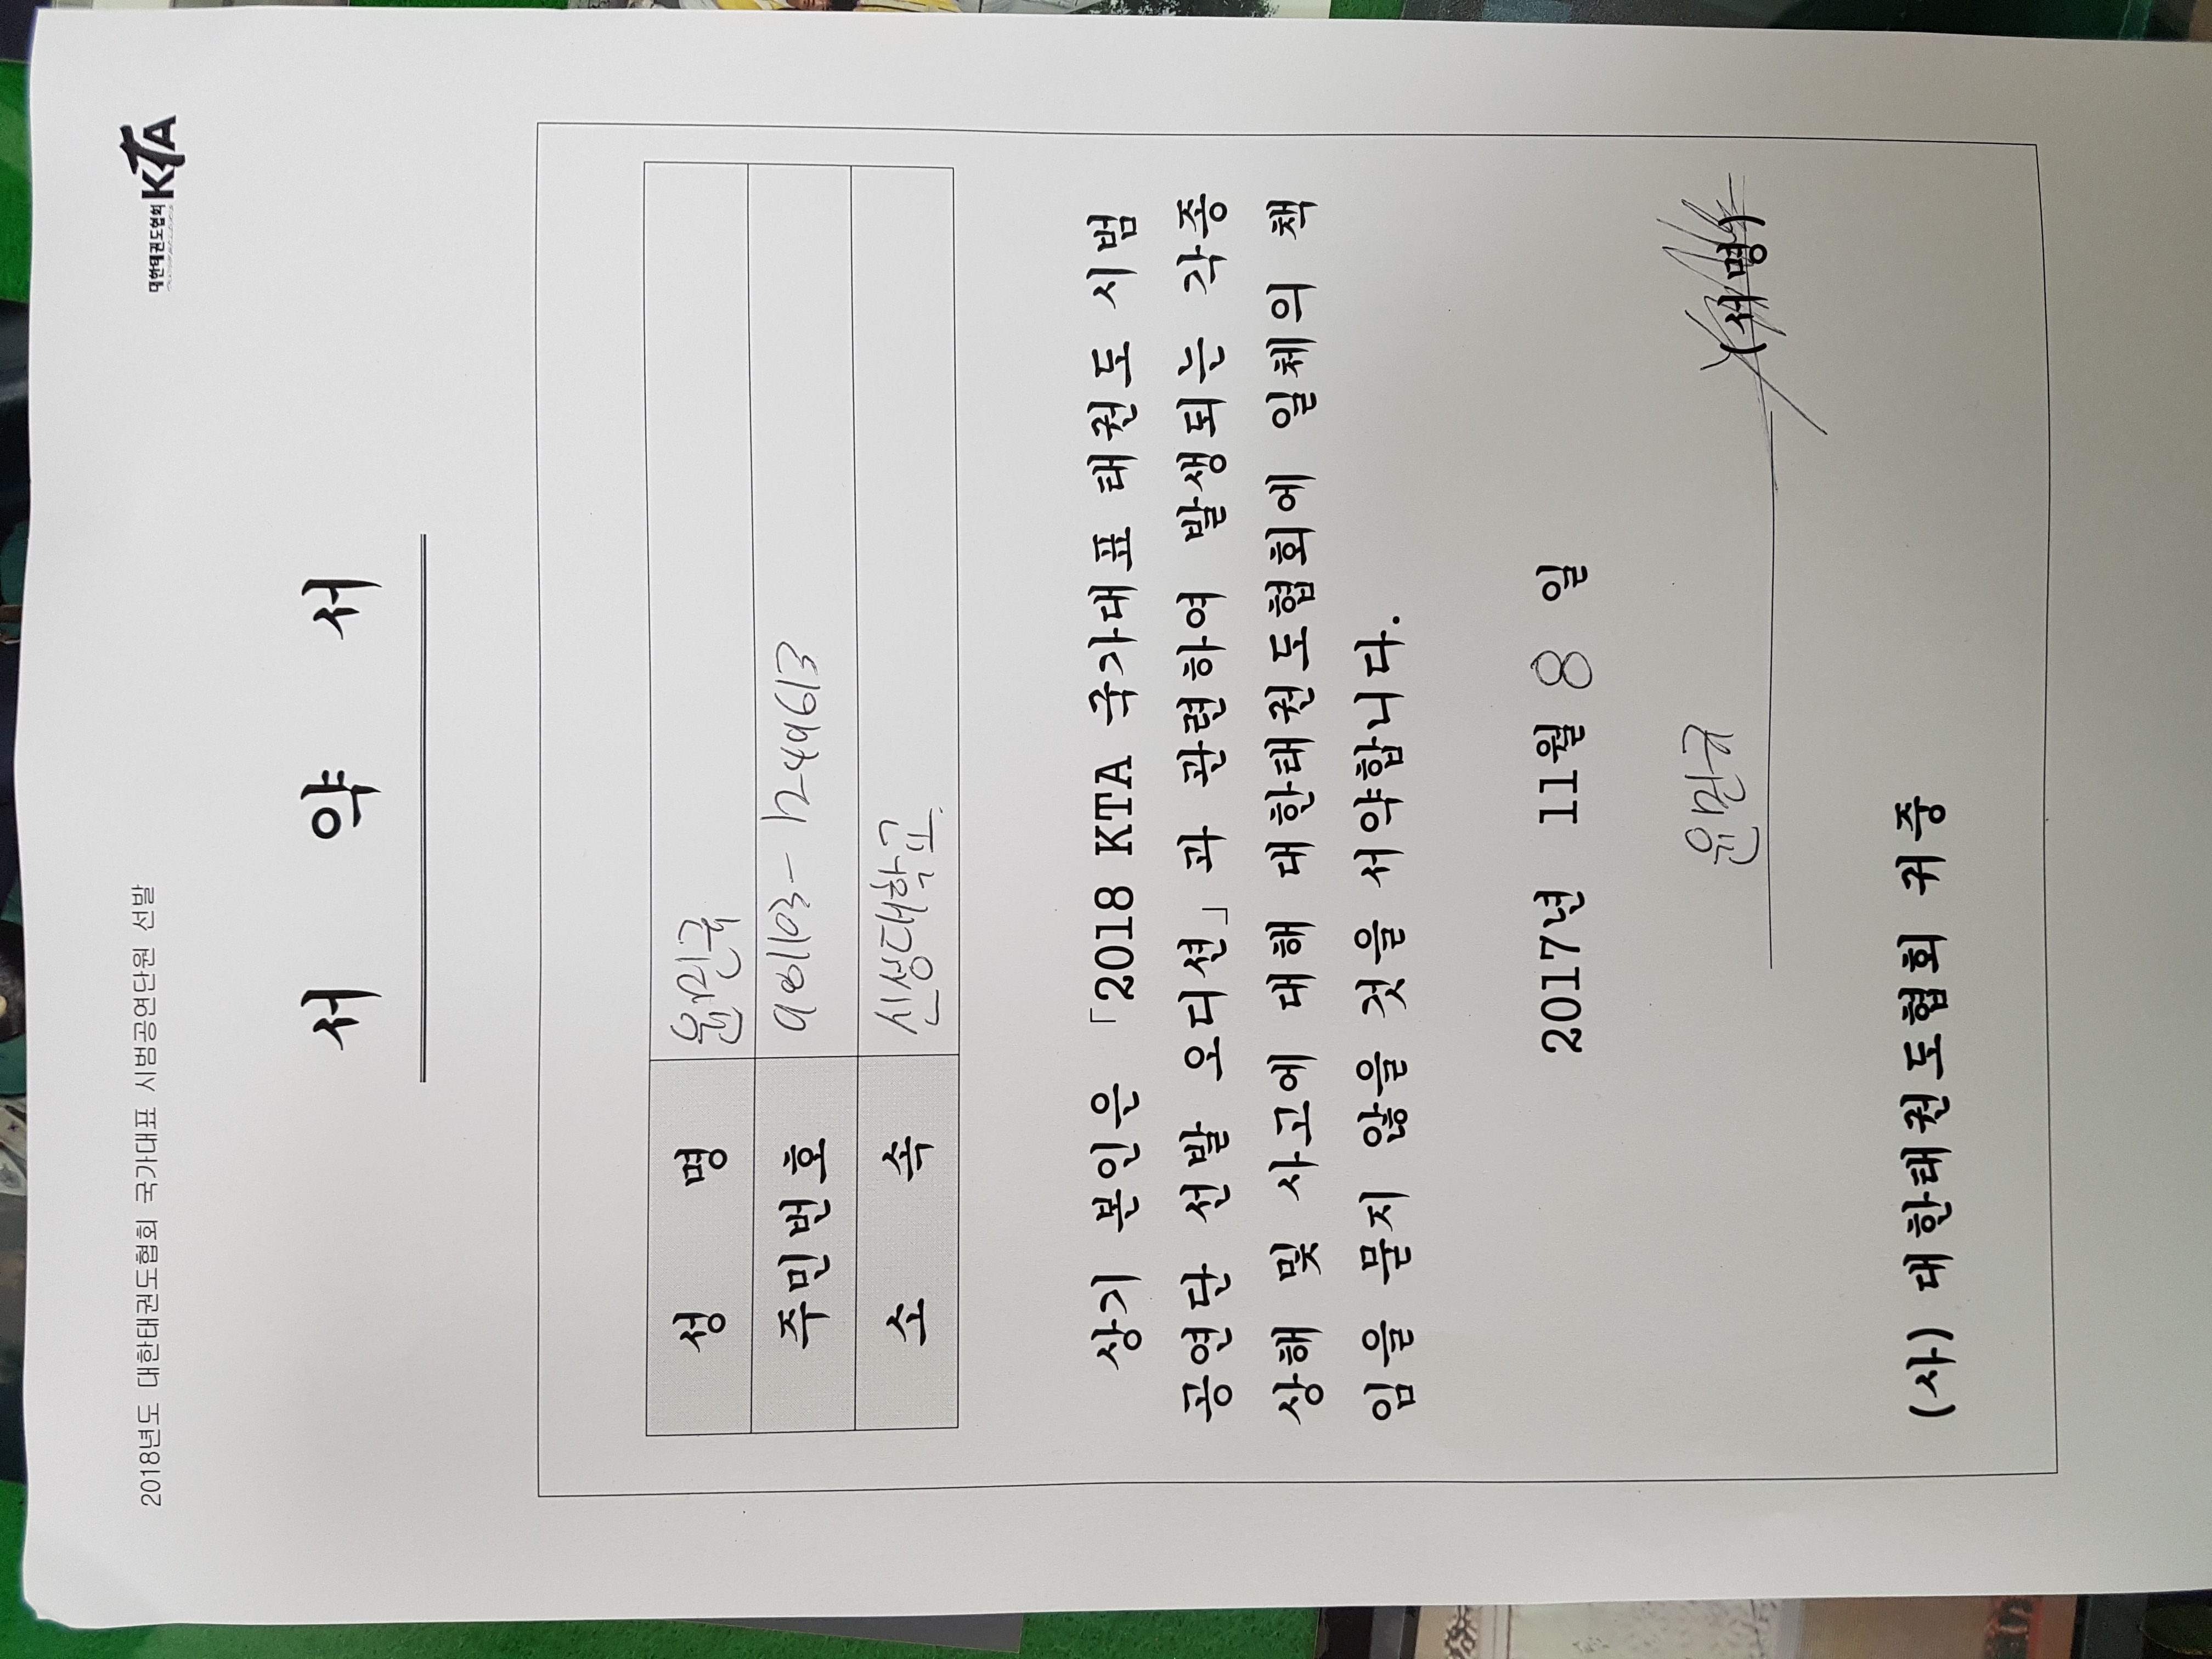 2018년도 대한태권도협회 국가대표 시범공연단원 선발
대한태권도협회 KTA
서 약 서
성 명 윤민규
주민번호
소 속 신성대학교
상기 본인은 「2018 KTA 국가대표 태권도 시범
공연단 선발 오디션」과 관련하여 발생되는 각종
상해 및 사고에 대해 대한태권도협회에 일체의 책
임을 묻지 않을 것을 서약합니다.
2017년 11월 8 일
윤민규 (서명)
(사) 대한태권도협회 귀중